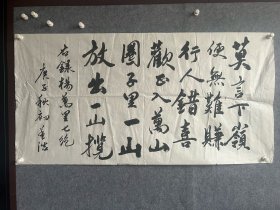 莫言下嶺
便無難賺
行人錯喜
歡正入萬山
圈子里一山
放出一山攬
右錄楊萬里七絕
庚子秋初